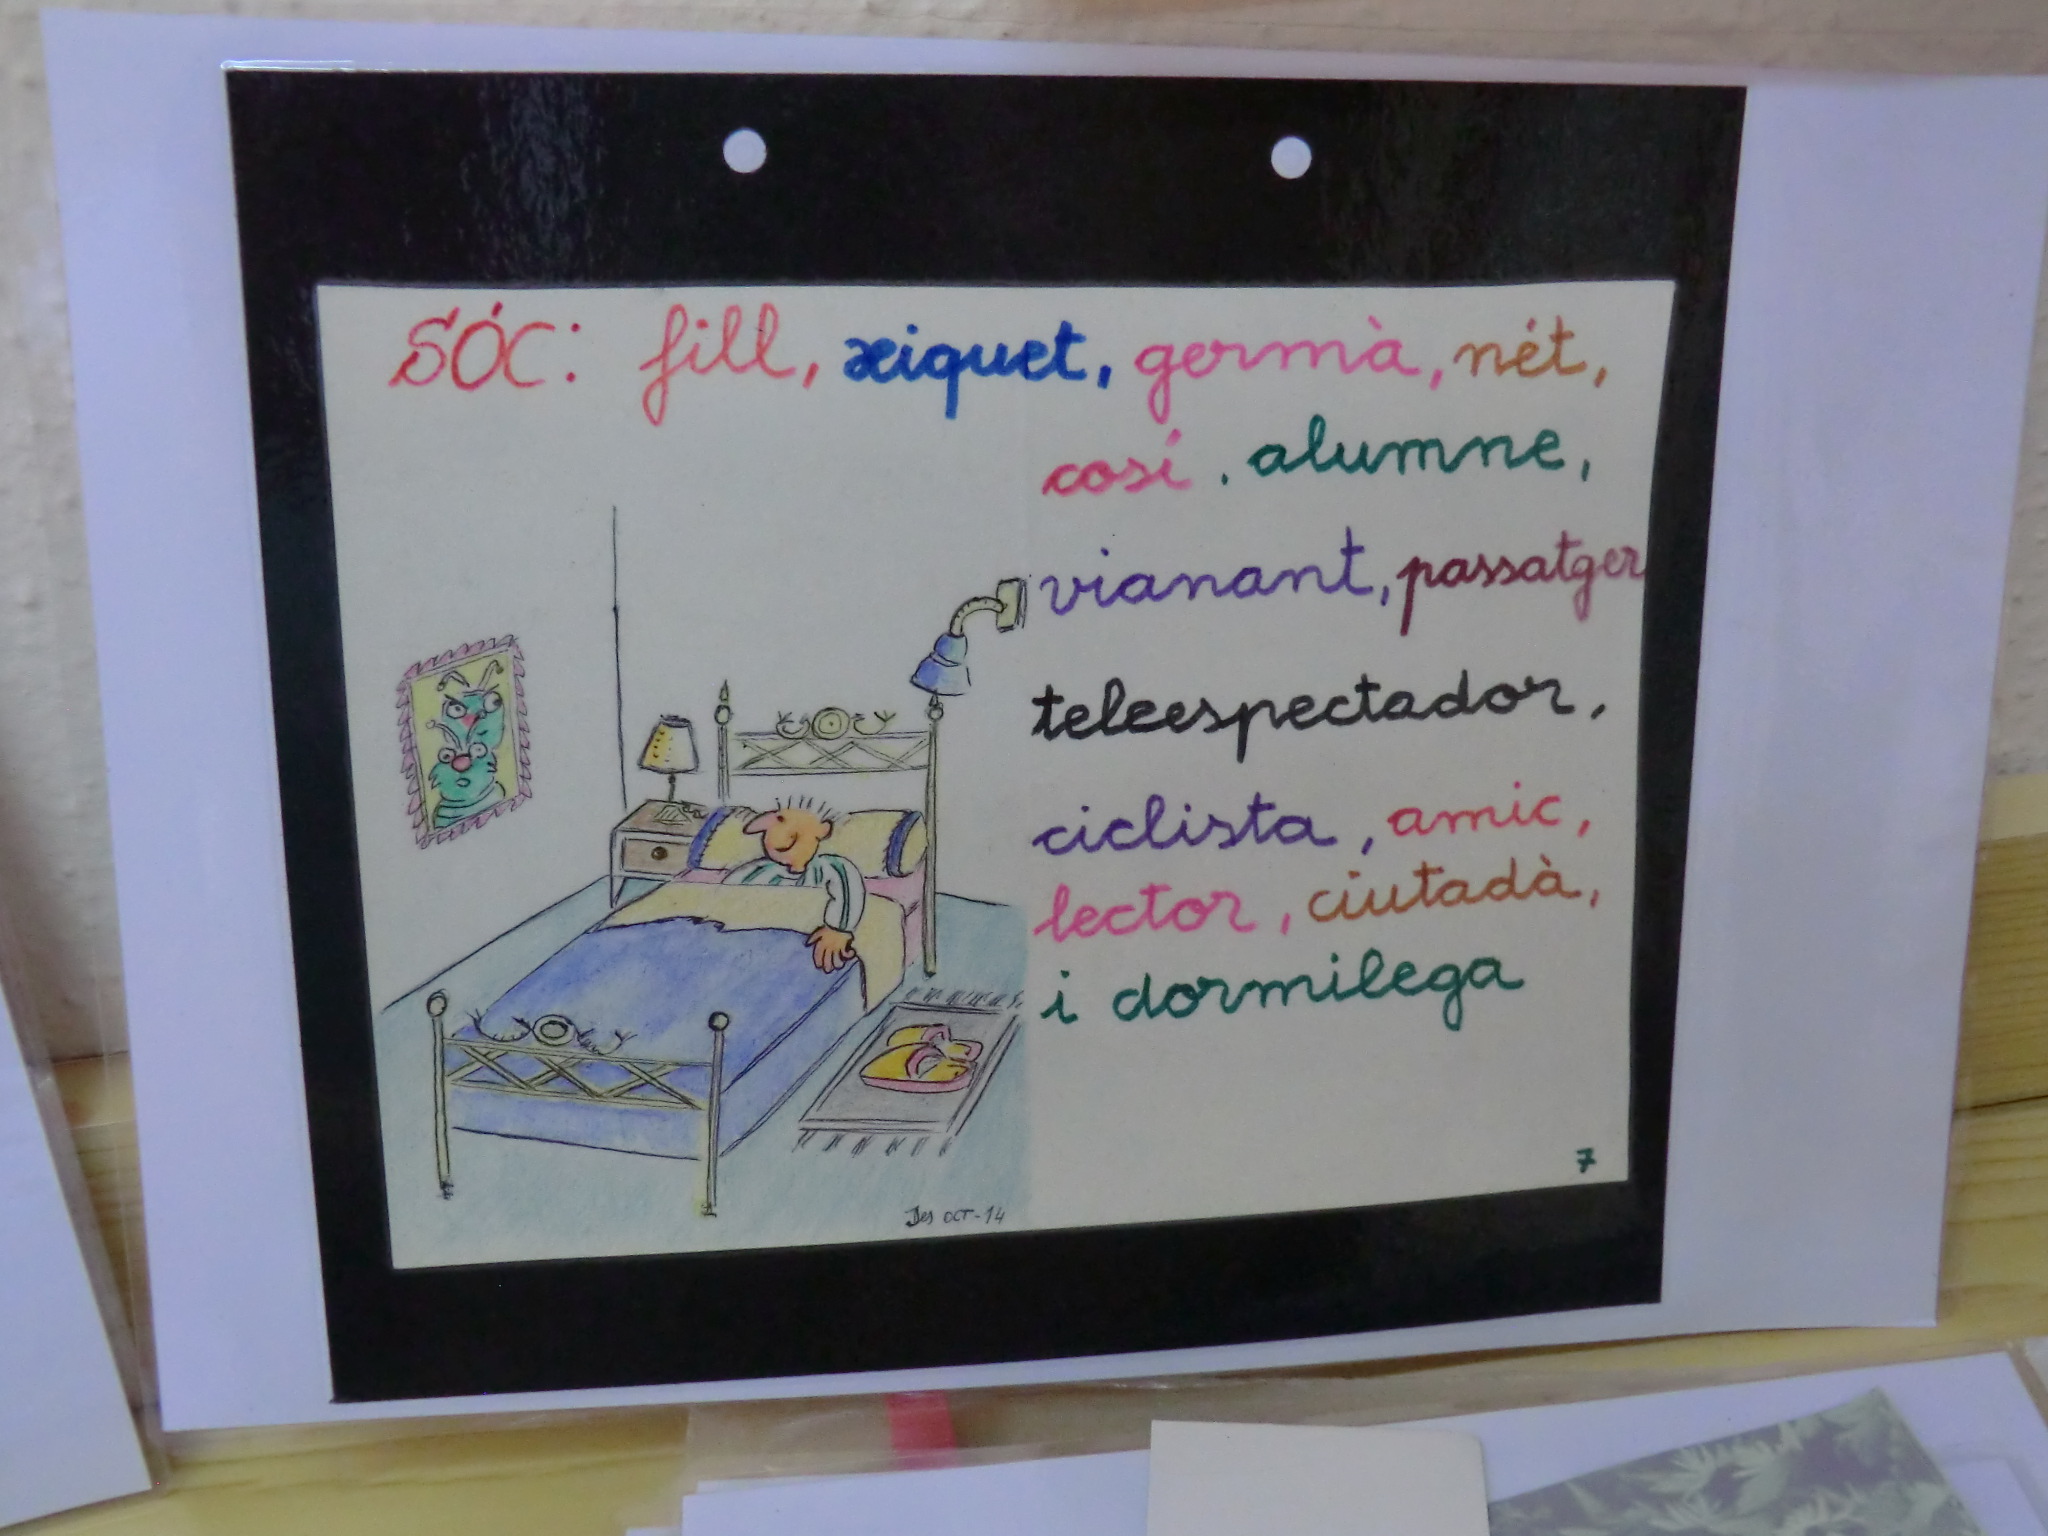 SÓC: fill, xiquet, germà, nét,
cosí, alumne,
vianant, passatger
teleespectador,
ciclista, amic,
lector, ciutadà,
i dormilega
7
Des OCT-14